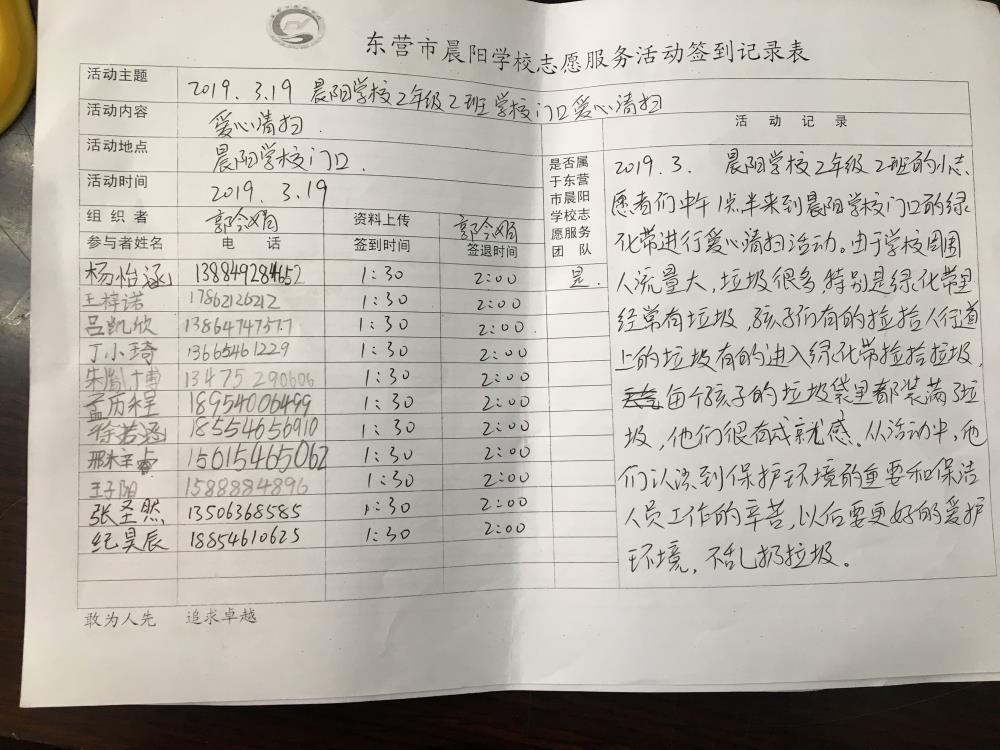 东营市晨阳学校志愿服务活动签到记录表
活动主题 2019.3.19 晨阳学校2年级2班学校门口爱心清扫
活动内容 爱心清扫.
活动地点 晨阳学校门口.
活动时间 2019.3.19
组织者 郭令娟 资料上传 郭令娟
参与者姓名 电话 签到时间 签退时间
杨怡涵 138849284652 1:30 2:00
王梓诺 17862126212 1:30 2:00
吕凯欣 13864747377 1:30 2:00.
丁小琦 13665461229 1:30 2:00
朱胤博 13475290606 1:30 2:00
孟历程 18954006499 1:30 2:00
徐若涵 18554656910 1:30 2:00
邢梓睿 15615465062 1:30 2:00
王子阳 15888884896 1:30 2:00
张圣然 13506368585 1:30 2:00
纪昊辰 18854610625 1:30 2:00
是否属
于东营
市晨阳
学校志
愿服务
团队
是.
活动记录
2019.3. 晨阳学校2年级2班的小志
愿者们中午1点半来到晨阳学校门口的绿
化带进行爱心清扫活动。由于学校周围
人流量大,垃圾很多,特别是绿化带里
经常有垃圾,孩子们有的捡拾人行道
上的垃圾有的进入绿化带捡拾垃圾,
每个孩子的垃圾袋里都装满了垃
圾,他们很有成就感。从活动中,他
们认识到保护环境的重要和保洁
人员工作的辛苦,以后要更好的爱护
环境,不乱扔垃圾。
敢为人先 追求卓越